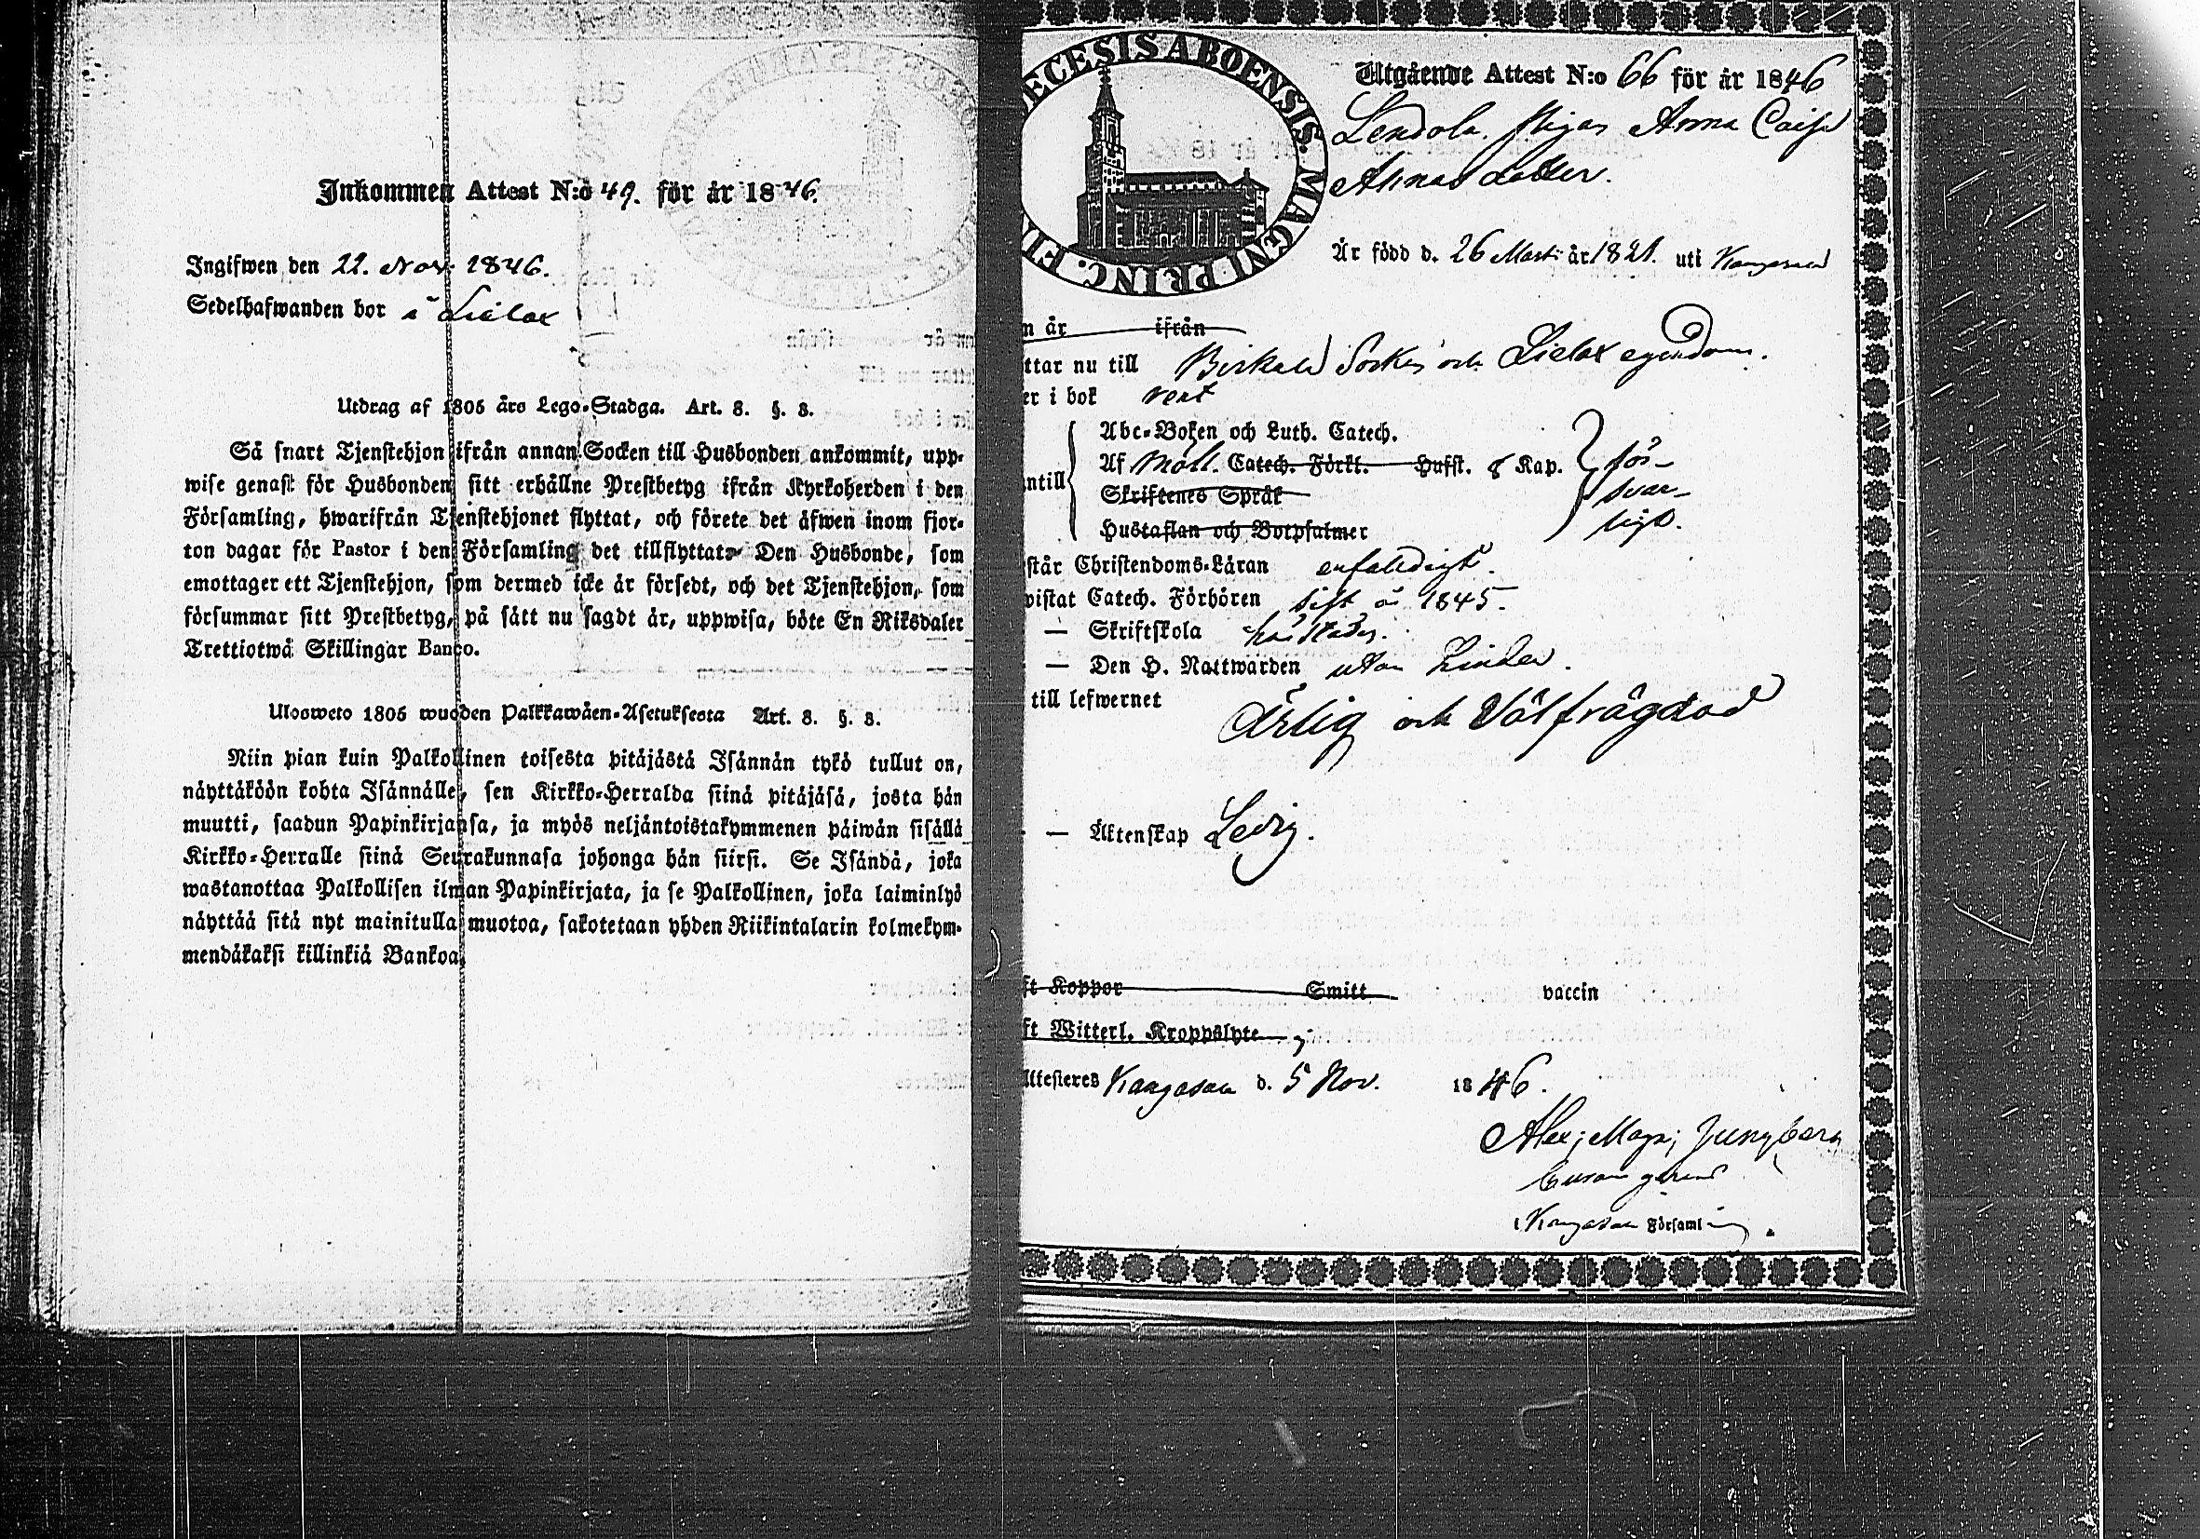 Inkommen Attest N:o 49. för år 1846.
Ingifwen den 22. Nov. 1846.
Sedelhafwanden bor i Lielax
Utdrag af 1805 års Lego-Stadga. Art. 8. §. 3.
Så snart Tjenstehjon ifrån annan Socken till Husbonden ankommit, upp-
wise genast för Husbonden sitt erhållne Prestbetyg ifrån Kyrkoherden i den
Församling, hwarifrån Tjenstehjonet flyttat, och förete det äfwen inom fjor-
ton dagar för Pastor i den Församling det tillflyttat. Den Husbonde, som
emottager ett Tjenstehjon, som dermed icke är försedt, och det Tjenstehjon, som
försummar sitt Prestbetyg, på sätt nu sagdt är, uppwisa, böte En Riksdaler
Trettiotwå Skillingar Banco.
Ulosweto 1805 wuoden Palkkawäen-Asetuksesta Art. 8. §. 3.
Niin pian kuin Palkollinen toisesta pitäjästä Isännän tykö tullut on,
näyttäköön kohta Isännälle, sen Kirkko-Herralda siinä pitäjäsä, josta hän
muutti, saadun Papinkirjansa, ja myös neljäntoistakymmenen päiwän sisällä
Kirkko-Herralle siinä Seurakunnasa johonga hän siirsi. Se Isändä, joka
wastanottaa Palkollisen ilman Papinkirjata, ja se Palkollinen, joka laiminlyö
näyttää sitä nyt mainitulla muotoa, sakotetaan yhden Riikintalarin kolmekym-
mendäkaksi killinkiä Bankoa.
ECESIS ABOENSIS. MAGNI PRINC. FI
Utgående Attest N:o 66 för år 1846
Lendola. Pigan Anna Caisa
Annasdotter.
Är född d. 26 Mart. år 1821. uti Kangasala
n år ifrån
ttar nu till Birkala Socken och Lielax egendom.
er i bok rent
Abc-Boken och Luth. Catech.
Af Möll. Catech. Förkl. Hufst. 8 Kap. för-
ntill Skriftenes Språk svar-
Hustaflan och Botpsalmer ligt.
står Christendoms-Läran enfaldigt.
vistat Catech. Förhören sist år 1845.
— Skriftskola härstädes.
— Den H. Nattwarden utan hinder.
till lefwernet Ärlig och Välfrägdad
— Äktenskap Ledig.
ft Koppor Smitt vaccin
ft Witterl. Kroppslyte
Attesteres Kangasala d. 5 Nov. 1846.
Alex; Magn; Jungberg
Curam gerens
i Kangasala Församl